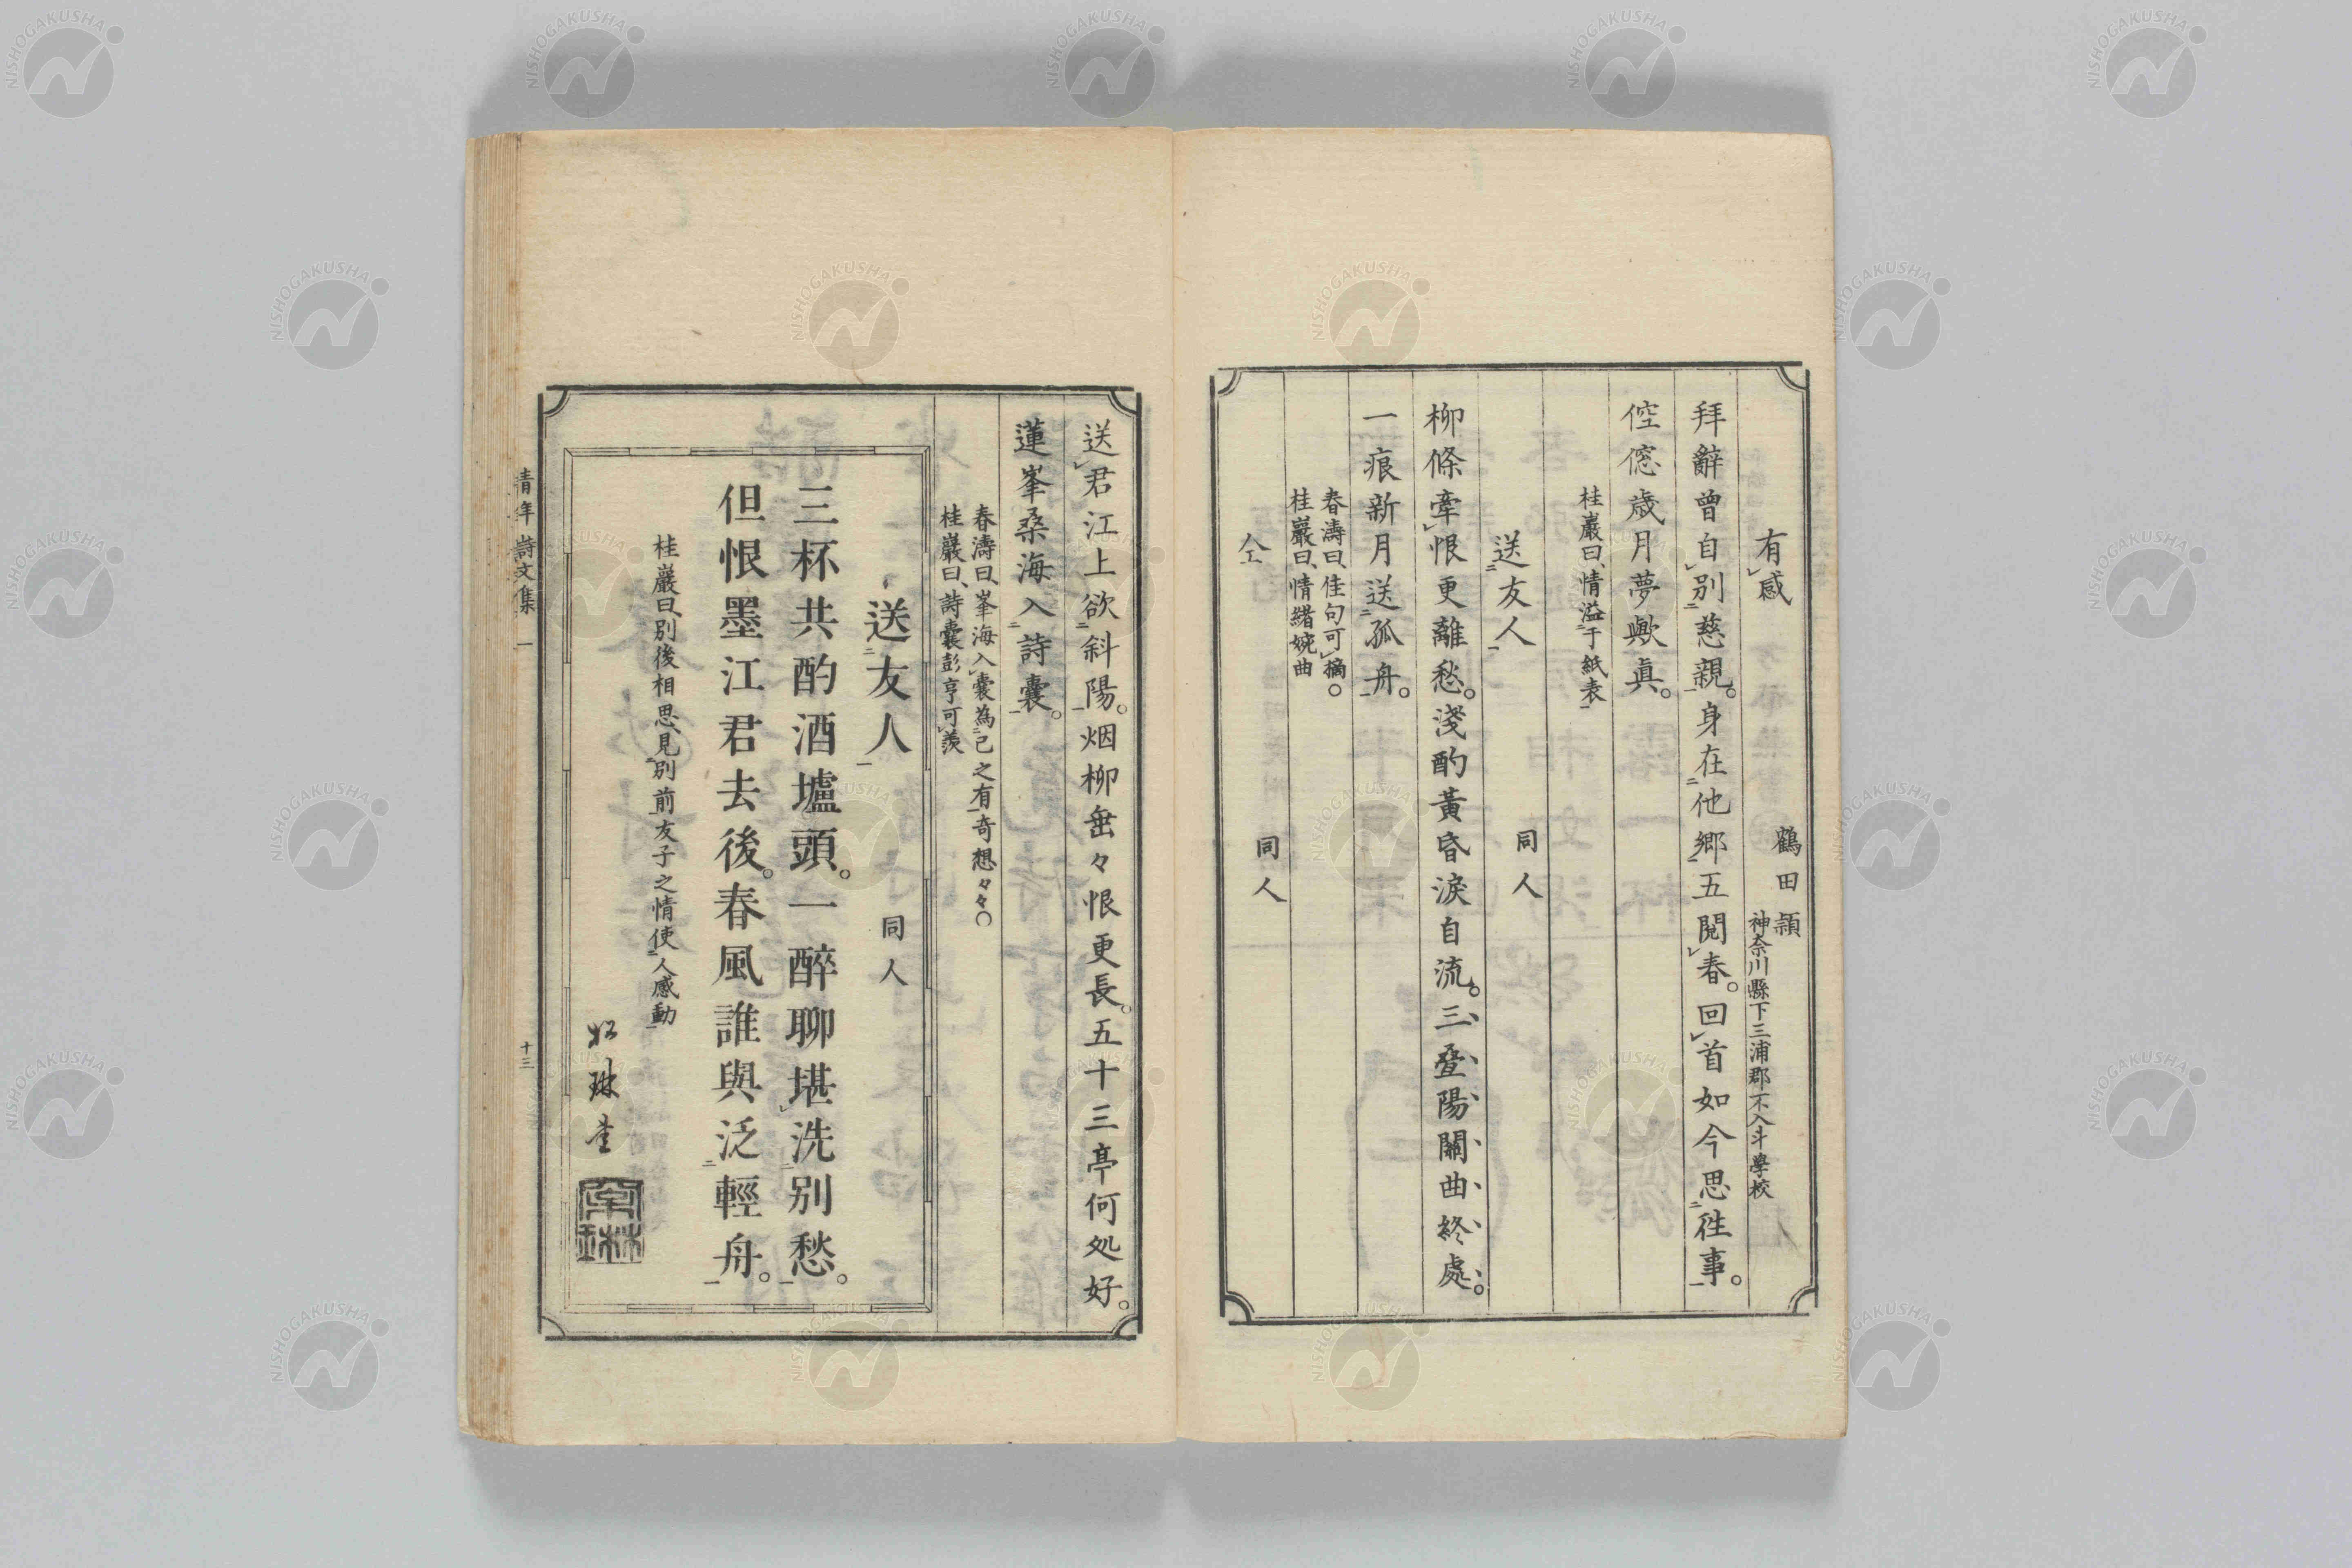 有感
鶴田頴
神奈川縣下三浦郡不入斗學校
拜辭曾自別慈親。身在他鄉五閱春。回首如今思徃事。
倥偬歳月夢歟眞。
桂巖曰、情溢于紙表
送友人
同人
柳條牽恨更離愁。淺酌黃昏淚自流。三疊陽關曲終處。
一痕新月送孤舟。
春濤曰、佳句可摘。
桂巖曰、情緒婉曲
仝
同人
送君江上欲斜陽。烟柳垂々恨更長。五十三亭何処好。
蓮峯桑海入詩囊。
春濤曰、峯海入囊為己之有奇想々々。
桂巖曰、詩囊彭亨可羨
送友人
同人
三杯共酌酒壚頭。一醉聊堪洗別愁。
但恨墨江君去後。春風誰與泛輕舟。
桂巖曰、別後相思、見別前友子之情使人感動
青年詩文集 一
十三
NISHOGAKUSHA